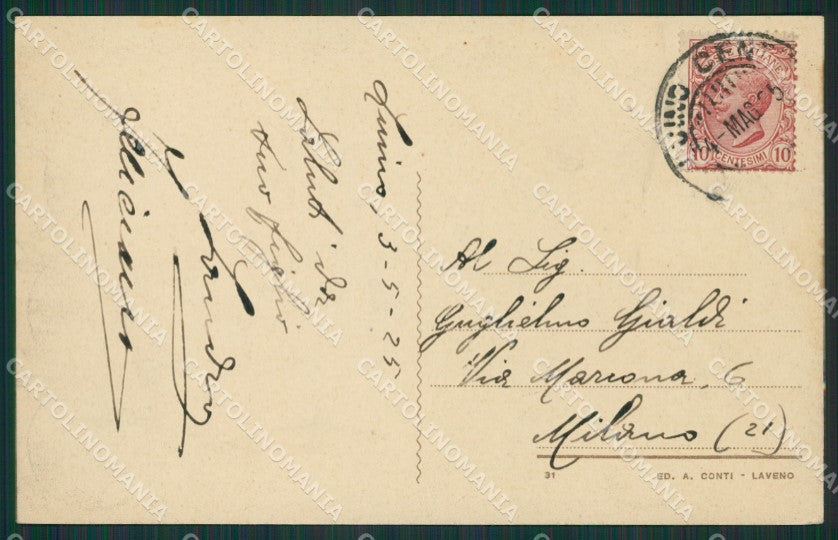 Luino, 3-5-25
Saluti da
tuo figlio
Feliciano
Al Sig.
Guglielmo Gialdi
Via Marcona, 6
Milano (21)
31 ED. A. CONTI - LAVENO
LUINO CENT
4-MAG 25
10 CENTESIMI 10
CARTOLINOMANIA